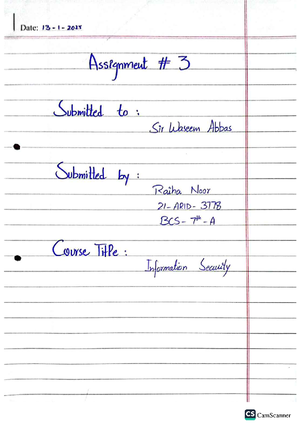 Date: 13-1-2025
Assignment # 3
Submitted to :
Sir Waseem Abbas
Submitted by :
Raiha Noor
21-ARID-3778
BCS-7th-A
Course Title :
Information Security
CS CamScanner